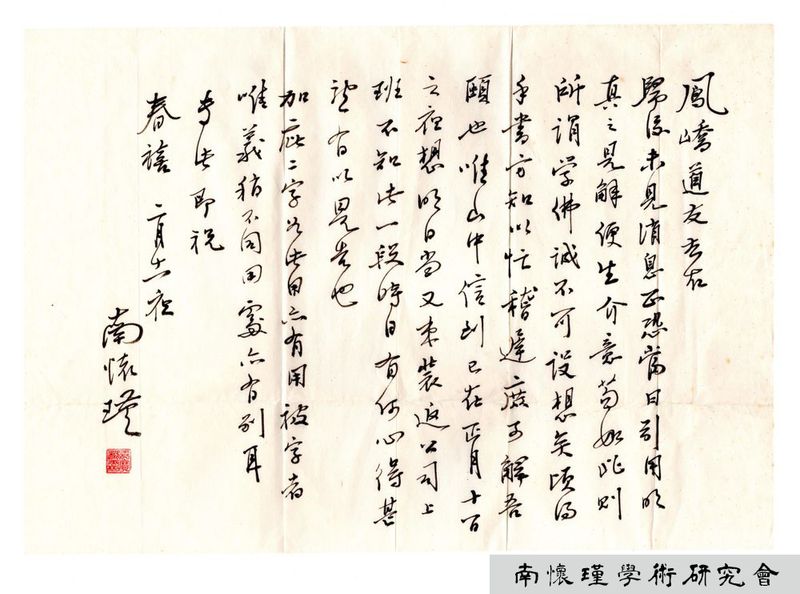 鳳嶠道友吾右
歸後未見消息正恐當日引用明
真之見解便生介意苟如此則
所謂學佛誠不可設想矣頃得
手書方知以忙稽遲庶可解吾
頤也唯山中信到已在正月十一日
之夜想明日當又束裝返公司上
班不知此一段時日有何心得甚
望有以見告也
加庇二字如此用亦有用被字者
唯義稍不同用處亦有別耳
專此即祝
春禧 二月十一夜
南懷瑾
南懷瑾學術研究會